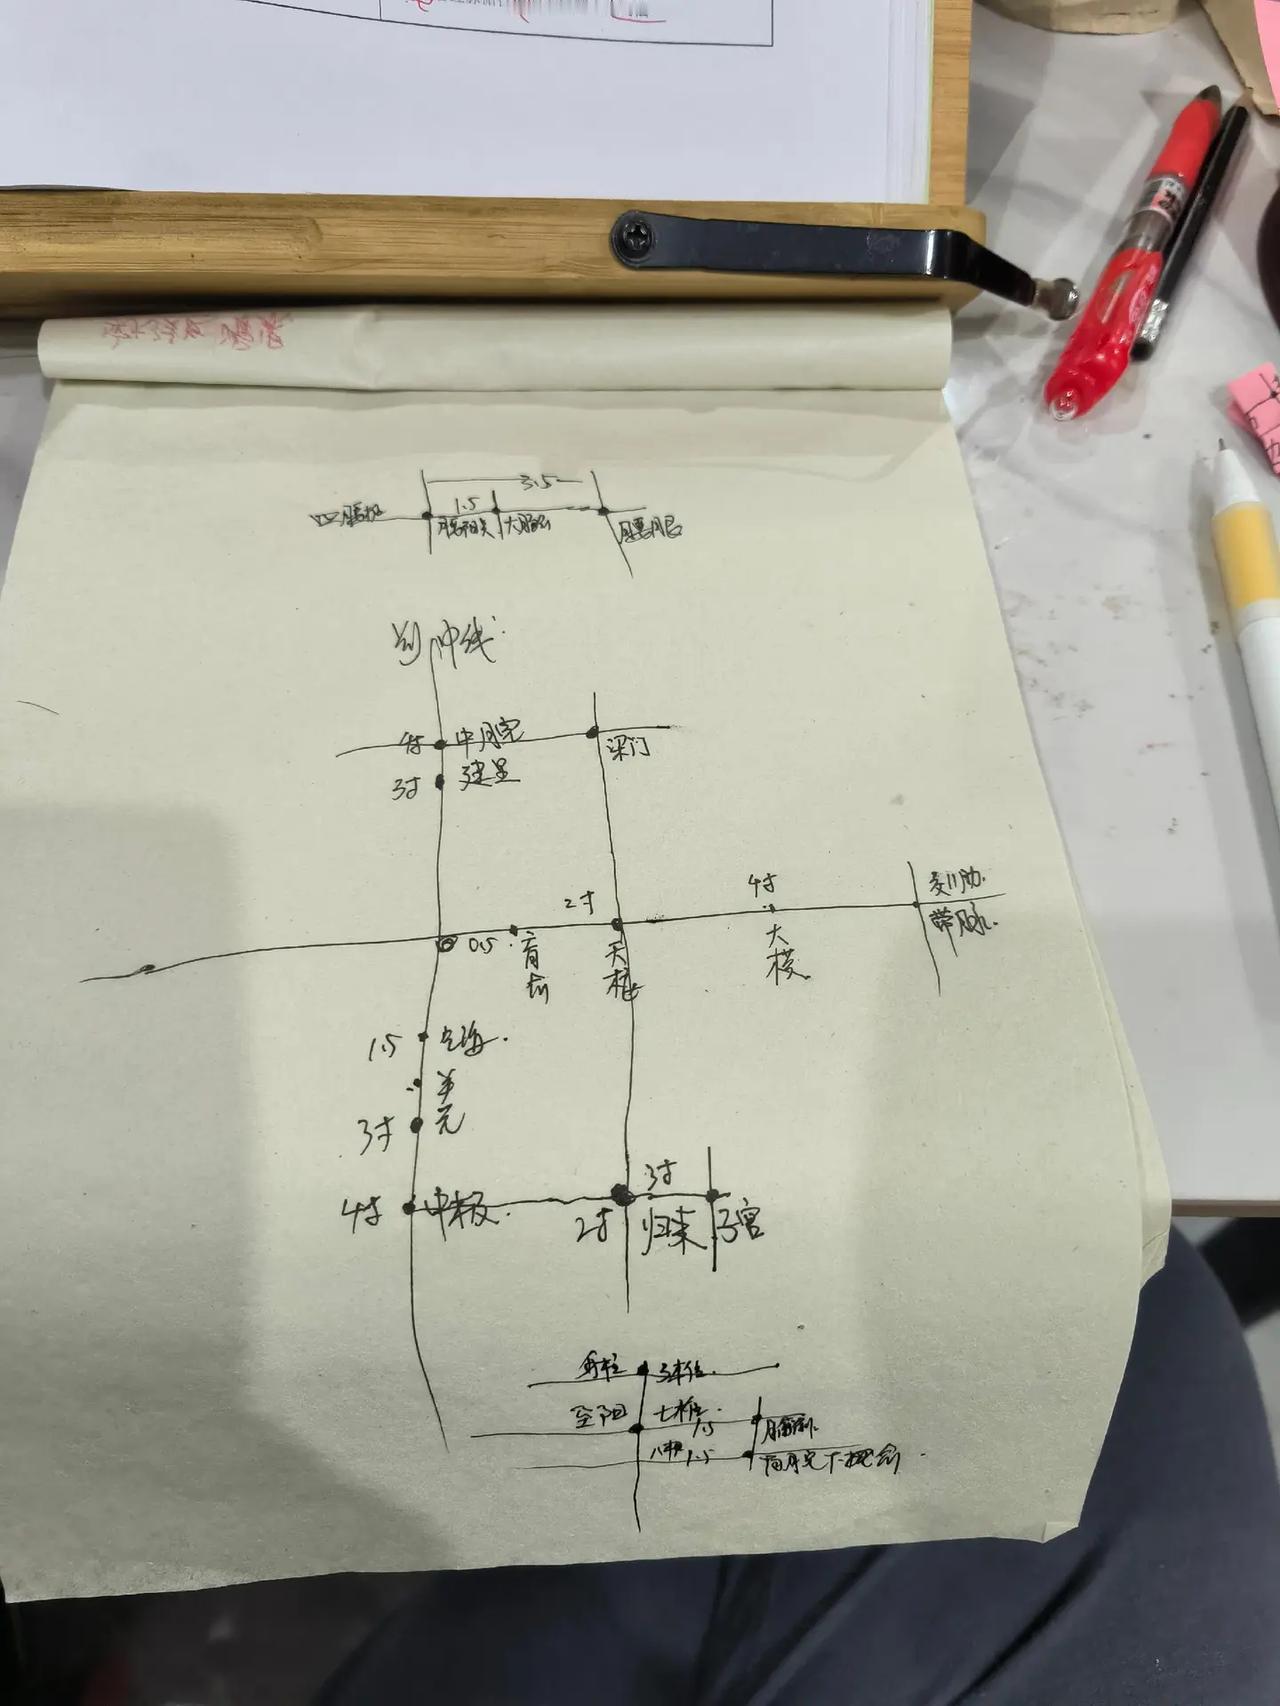 3.5
1.5
四腰椎 腰阳关 大肠俞 腰眼
前中线
4寸 中脘 梁门
3寸 建里
4寸
2寸
0.5
肓俞 天枢 大横 带脉
1.5 气海
关元
3寸
3寸
4寸 中极 2寸 归来 子宫
身柱 3椎
至阳 七椎 1.5
八椎 1.5 胃脘下俞